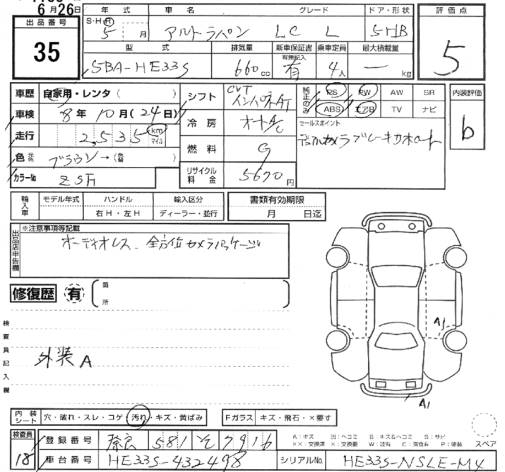 6月26日
出品番号
35
年式 車名 グレード ドア・形状 評価点
S・H・R 5 月 アルトラパン LC L 5HB
5
型式 排気量 新車保証書 乗車定員 最大積載量
5BA-HE33S 660cc 有無記入 有 4人 — kg
車歴 自家用・レンタ( ) シフト CVT インパネAT
PS PW AW SR 内装評価
ABS エアB TV ナビ
b
車検 8年10月(24日) 冷房 オートAC セールスポイント
走行 2,535 km マイル
燃料 G
色 ブラウン→
カラーNo ZSH リサイクル料金 5670円
輸入車 モデル年式 ハンドル 輸入区分 書類有効期限
右H・左H ディーラー・並行 月 日迄
出品店申告欄 ※注意事項等記載
オーディオレス、全方位カメラパッケージ
修復歴 有 箇所
検査員記入欄
外装A
A1
A1
内装シート 穴・破れ・スレ・コゲ・汚れ・キズ・黄ばみ Fガラス キズ・飛石・×要す
スペア
検査員 18
登録番号 581 そ 7916
車台番号 HE33S-432498 シリアルNo. HE33S-NSLE-M4